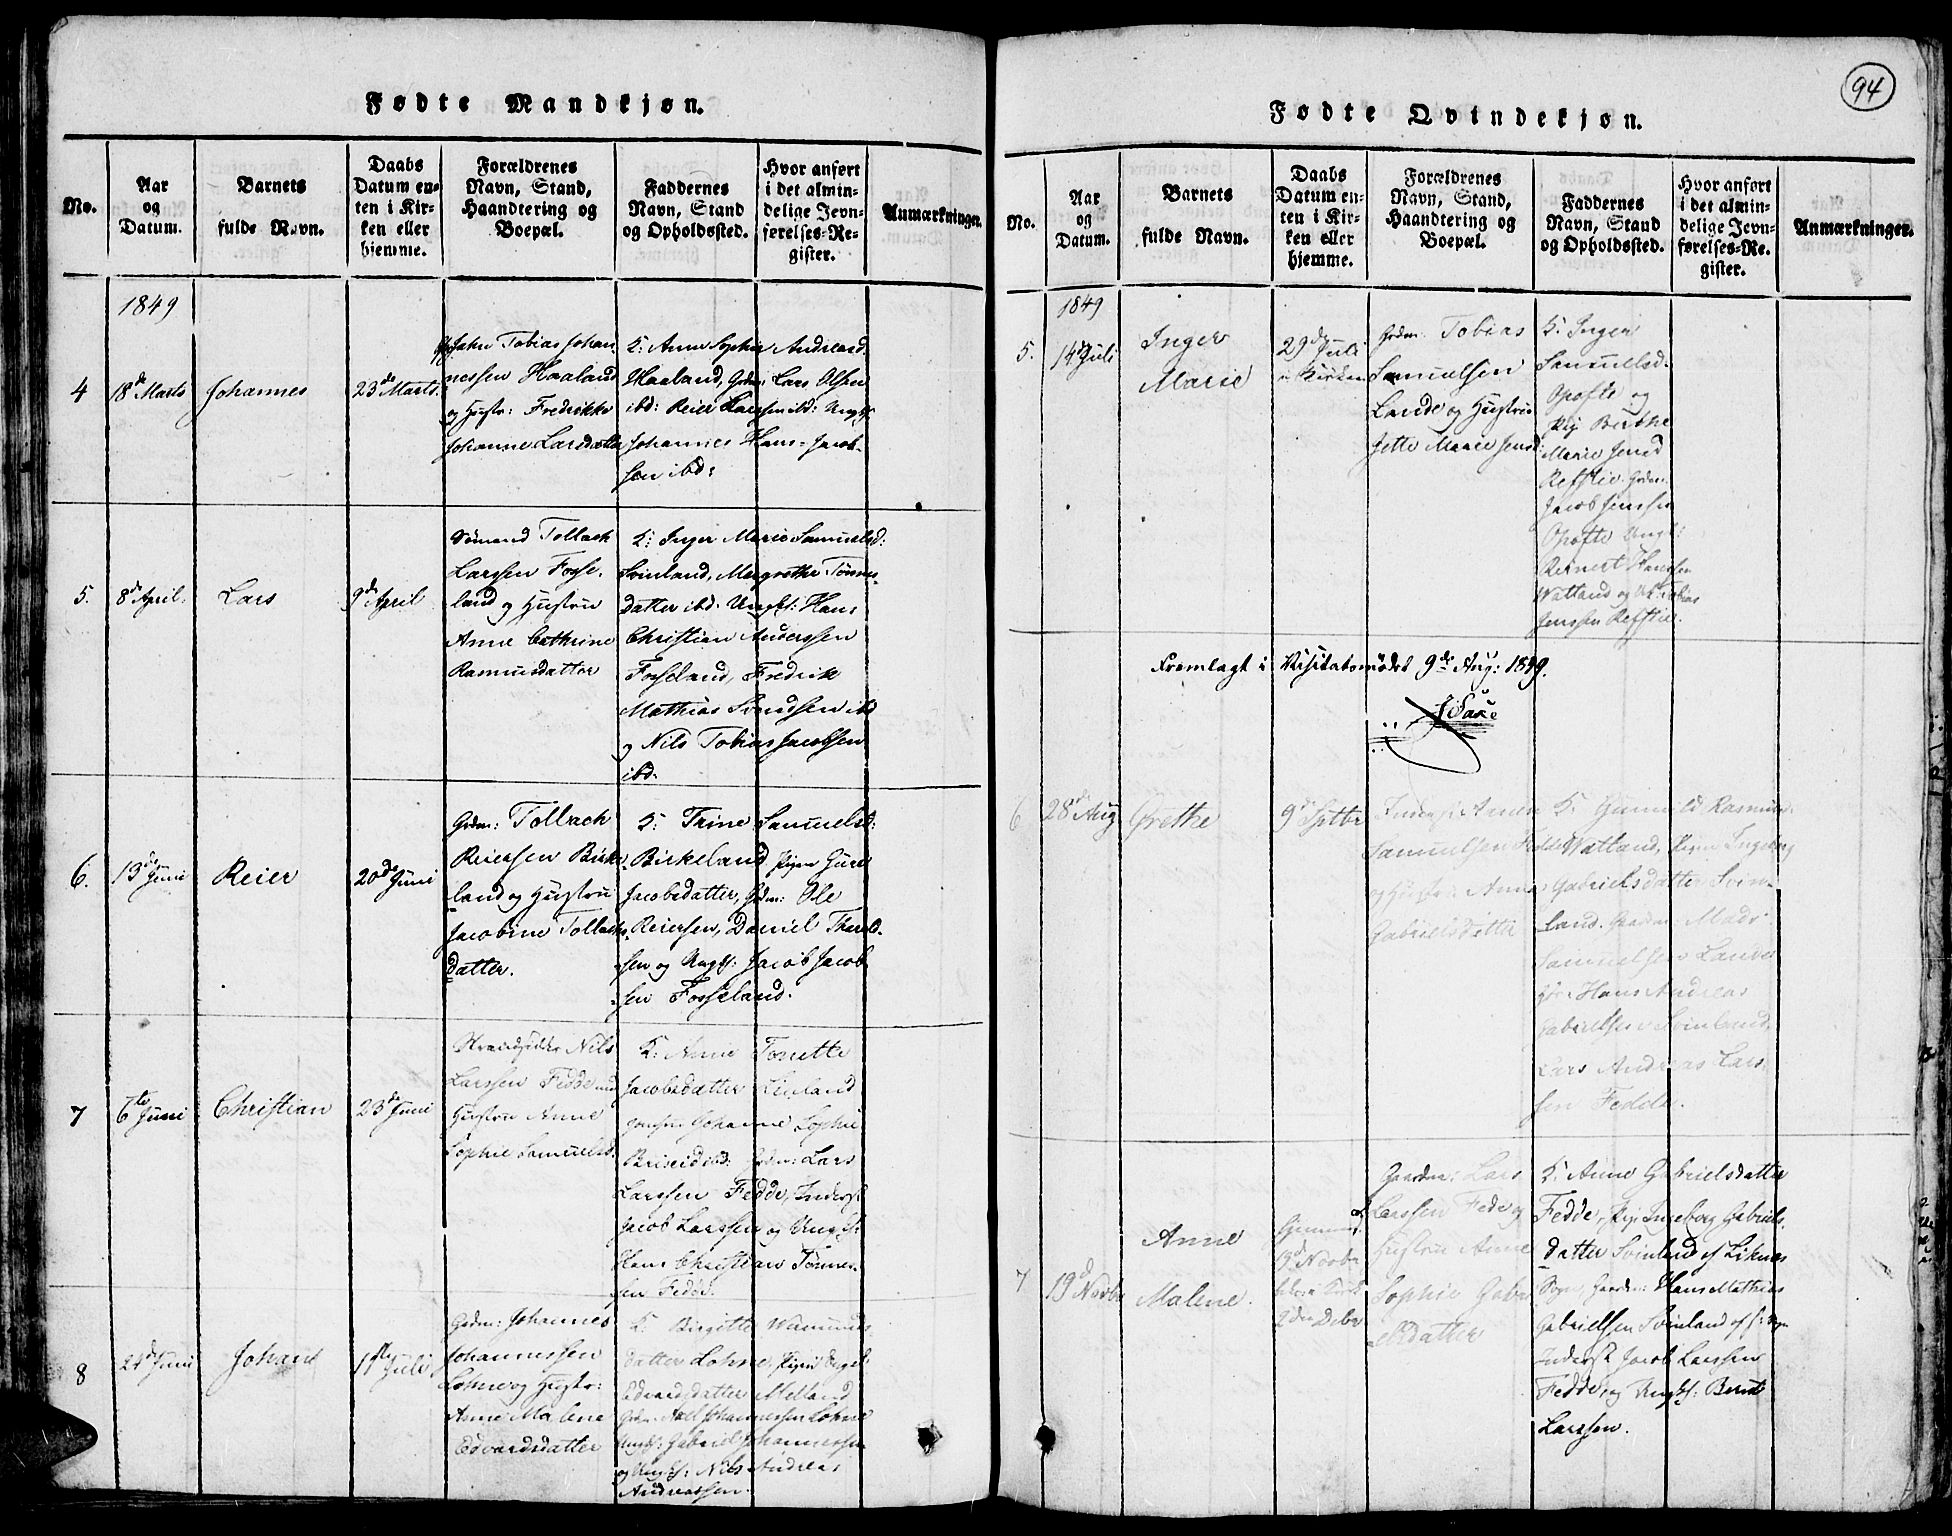 Fødte Mandkjøn.
No.
Aar
og
Datum.
Barnets
fulde Navn.
Daabs
Datum en-
ten i Kir-
ken eller
hjemme.
Forældrenes
Navn, Stand,
Haandtering og
Boepæl.
Faddernes
Navn, Stand
og Opholdssted.
Hvor anført
i det almin-
delige Jevn-
førelses-Re-
gister.
Anmærkninger.
1849
4
18de Marts
Johannes
23de Marts.
John Tobias Johan-
nessen Haaland
og Hustr: Fredrikke
Johanne Larsdatter
K: Anne Sophie Andreasd.
Haaland, Grdm: Lars Olsen
ibd: Reier Larssen ibd: Ungk:
Johannes Hans- Jacob-
sen ibd:
5.
8de April.
Lars
9de April
Sømand Tollach
Larssen Fosse-
land og Hustru
Anne Cathrine
Rasmusdatter
K: Inger Marie Samuelsd:
Svinland, Margrethe Tønnes-
datter ibd. Ungk: Hans
Christian Anderssen
Fosseland, Fredrik
Mathias Svendsen ibd
og Nils Tobias Jacobsen
ibd.
6.
13de Juni
Reier
20de Juni
Grdm: Tollach
Reiersen Birke-
land og Hustru
Jacobine Tollachs-
datter.
K: Trine Samuelsd:
Birkeland, Pigen Guri
Jacobsdatter, Grdm: Ole
Reiersen, Daniel Thorald-
sen og Ungk: Jacob Jacob-
sen Fosseland.
7
6te Juni
Christian
23de Juni
Strandsidder Nils
Larssen Fedde und
Hustru Anne
Sophie Samuelsd.
K: Anne Tonette
Jacobsdatter Liuland
Johanne Sophie
ibd: Grdm: Lars
Larssen Fedde, Inderst
Jacob Larssen og Ungk:
Hans Christian Tønnes-
sen Fedde.
8
24de Juni
Johan
11te Juli
Grdm: Johannes
Johannessen
Lohne og Hustr:
Anne Malene
Edvardsdatter
K. Birgitte
datter Lohne, Pigen
Edvardsdatter Melland
Grdm: Axel Johannessen Lohne
Ungk: Gabriel Johannessen
og Ungk: Nils Andreas
Andreassen.
94
Fødte Qvindekjøn.
No.
Aar
og
Datum.
Barnets
fulde Navn.
Daabs
Datum en-
ten i Kir-
ken eller
hjemme.
Forældrenes
Navn, Stand,
Haandtering og
Boepæl.
Faddernes
Navn, Stand
og Opholdssted.
Hvor anført
i det almin-
delige Jevn-
førelses-Re-
gister.
Anmærkninger.
1849
5.
14de Juli
Inger
Marie
29de Juli
i Kirken
Grdm. Tobias
Samuelsen
Lande og Hustru
Jette Marie Jensd:
K. Inger
Samuelsd.
Opofte og
Pig. Berthe
Marie Jensd
Refstie. Grdm:
Jacob Jenssen
Opofte Ungk:
Reinert Hanssen
Watland og Uk. Tobias
Jenssen Refstie.
Fremlagt i Visitatsmødet 9de Aug: 1849.
6
28de Aug
Grethe
9de Septbr
Inderst Arnen
Samuelsen Fedde
og Hustr: Anne
Gabrielsdatter
K. Gunnild Rasmus-
Watland, Pigen Ingeborg
Gabrielsdatter Svin-
land. Gaardm: Mads
Samuelsen Lande
Hans Andreas
Gabrielsen Svinland,
Lars Andreas Lars-
sen Fedde.
7
19de Novbr
Anne
Malene.
Hjemmed.
9de Novbr
i Kirk
2den Debr
Gaardm: Lars
Larssen Fede og
Hustru Anne
Sophie Gabri-
elsdatter
K. Anne Gabrielsdatter
Fedde, Pig. Ingeborg Gabriels-
datter Svinland af Liknes
Sogn, Gaardm: Hans Mathias
Gabrielsen Svinland af s: Sogn
Inderst Jacob Larssen
Fedde og Ungk: Bernt
Larssen.